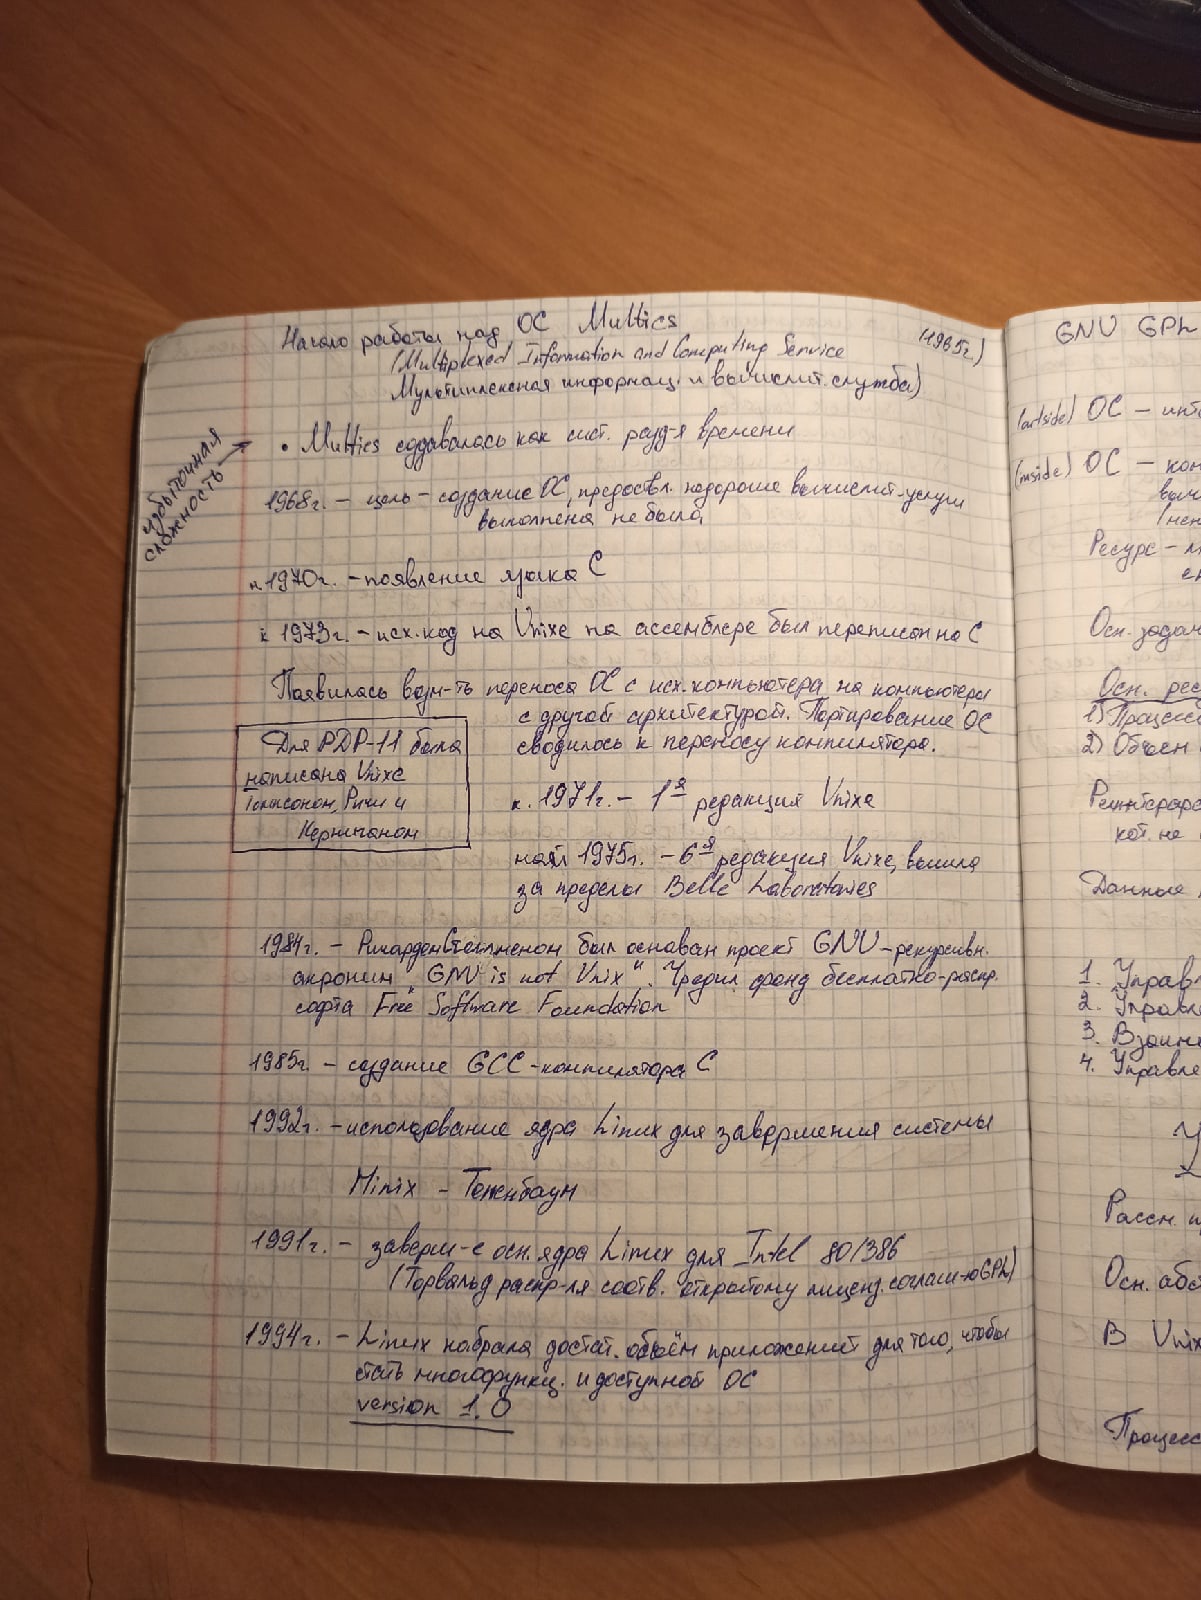 Начало работы над ОС Multics (1965г.)
(Multiplexed Information and Computing Service
Мультиплексная информац. и вычислит. служба)
избыточная сложность →
• Multics создавалась как сист. разд-я времени
1968г. – цель – создание ОС, предоставл. недорогие вычислит. услуги
выполнена не была
к 1970г. – появление языка C
к 1973г. – исх. код на Unixe на ассемблере был переписан на C
Появилась возм-ть переноса ОС с исх. компьютера на компьютеры
с другой архитектурой. Портирование ОС
сводилось к переносу компилятора.
Для PDP-11 была
написана Unixe
Томпсоном, Ричи и
Керниганом
к. 1971г. – 1я редакция Unixe
1975г. – 6я редакция Unixe, вышла
за пределы Belle Laboratories
1984г. – Ричардом Столлменом был основан проект GNU – рекурсивн.
акроним "GNU is not Unix". Учредил фонд бесплатно-распр.
софта Free Software Foundation
1985г. – создание GCC – компилятора C
1992г. – использование ядра Linux для завершения системы
Minix – Таненбаум
1991г. – заверш-е осн. ядра Linux для Intel 80/386
(Торвальд распр-ля соотв. открытому лиценз. соглаш-ю GPL)
1994г. – Linux набрала достат. объём приложений для того, чтобы
стать многофункц. и доступной ОС
version 1.0
GNU GPL
(outside) ОС –
(inside) ОС –
Ресурс –
Осн.
Осн.
1) 
2) Объём
кот. не
Данные
1.
2.
3.
4.
Рассм.
Осн.
В Unix